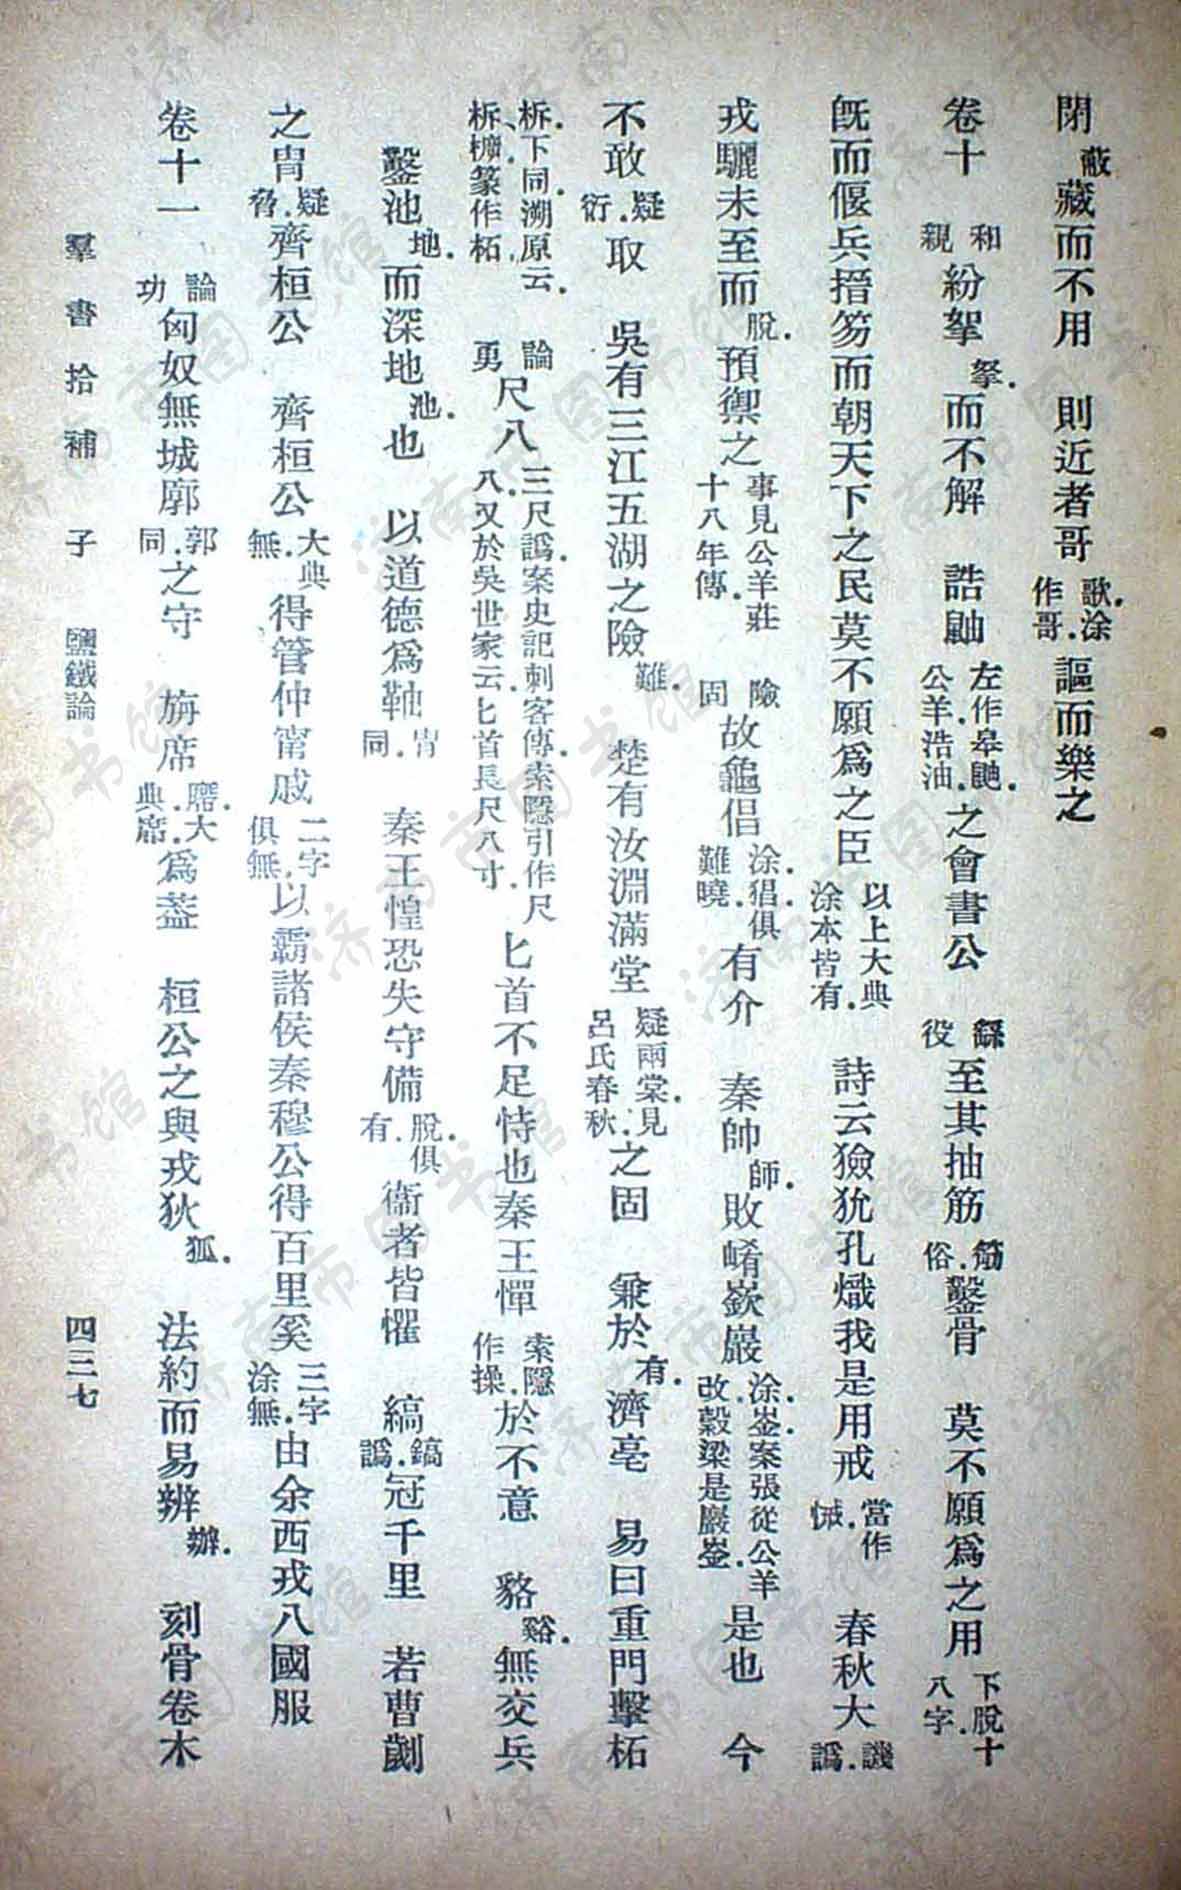 閉蔽藏而不用　則近者哥歌.涂作哥.謳而樂之
卷十　和親紛挐拏.而不解　誥鼬左作皋鼬.公羊浩油.之會書公　繇役至其抽筋筋俗.鑿骨　莫不願爲之用下脫十八字.
旣而偃兵搢笏而朝天下之民莫不願爲之臣以上大典涂本皆有.　詩云獫狁孔熾我是用戒當作悈.　春秋大譏譌.
戎驪未至而脫.預禦之事見公羊莊十八年傳.　險固故龜倡涂.猖俱難曉.有介　秦帥師.敗崤嶔巖涂.崟.案張從公羊改.穀梁是巖崟.是也　今
不敢疑.衍取　吳有三江五湖之險難.　楚有汝淵滿堂疑兩棠.見呂氏春秋.之固　兼於有.濟亳　易曰重門擊柘
柝.下同.溯原云.柝、㯓.篆作柘.　論勇尺八三尺譌.案史記刺客傳.索隱引作尺八.又於吳世家云.匕首長尺八寸.匕首不足恃也秦王憚索隱作操.於不意　貉谿.無交兵
鑿池地.而深地池.也　以道德爲軸胄.同.　秦王惶恐失守備脫.俱有.衞者皆懼　縞鎬譌.冠千里　若曹劌
之冑疑.脅.齊桓公　齊桓公大典無.得管仲甯戚二字俱無.以霸諸侯秦穆公得百里奚三字涂無.由余西戎八國服
卷十一　論功匈奴無城廓郭.同.之守　旃席廗.大典.席.爲蓋　桓公之與戎狄狐.　法約而易辨辦.　刻骨卷木
羣書拾補　子　鹽鐵論　四三七